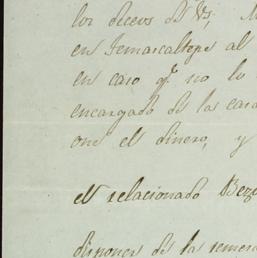 los deceos de Vs,
en Temascaltepe al
en caso q.e no lo
encargado de las
one el dinero, y
el relacionado Beze
disponer de la remesa